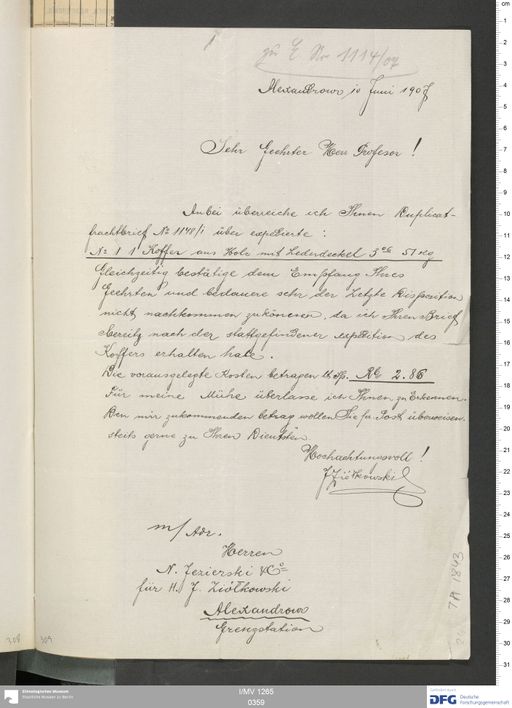 zu E. No 1114/07
Alexandrowo 10 Juni 1907
Sehr Geehrter Herr Profesor!
Anbei überreiche ich Ihnen Duplicat-
frachtbrief No 1148/1 über expedierte:
No 1 1 Koffer aus Holz mit Lederdeckel 51 kg
Gleichzeitig bestätige dem Empfang Ihres
Geehrten und bedauere sehr der Letzte Disposition
nicht nachkommen zukönenen, da ich Ihren Brief
bereitz nach der stattgefundener expedition des
Koffers erhalten hate.
Die vorausgelegte Kosten betragen Rb 2.86
Für meine Mühe überlasse ich Ihnen zu Erkennen.
Den mir zukommenden betrag wollen Sie pr. Post überweisen.
stets gerne zu Ihren Diensten
Hochachtungsvoll!
J Ziółkowski
m/ Adr.
Herren
N. Jezierski & Co
für H. J. Ziółkowski
Alexandrowo
Grenzstation
7A 1843
308
309
Ethnologisches Museum
Staatliche Museen zu Berlin
I/MV 1265
0359
Gefördert durch
DFG
Deutsche
Forschungsgemeinschaft
cm
1
2
3
4
5
6
7
8
9
10
11
12
13
14
15
16
17
18
19
20
21
22
23
24
25
26
27
28
29
30
31